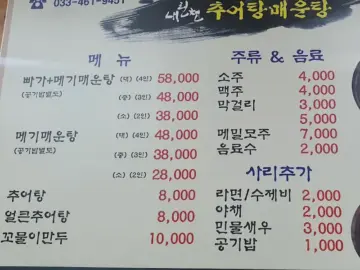 ☎ 033-461-9451
내린천 추어탕·매운탕
메 뉴
빠가+메기매운탕 (대) (4인) 58,000
(공기밥별도) (중) (3인) 48,000
(소) (2인) 38,000
메기매운탕 (대) (4인) 48,000
(공기밥별도) (중) (3인) 38,000
(소) (2인) 28,000
추어탕 8,000
얼큰추어탕 8,000
꼬물이만두 10,000
주류 & 음료
소주 4,000
맥주 4,000
막걸리 3,000
5,000
메밀모주 7,000
음료수 2,000
사리추가
라면/수제비 2,000
야채 2,000
민물새우 3,000
공기밥 1,000